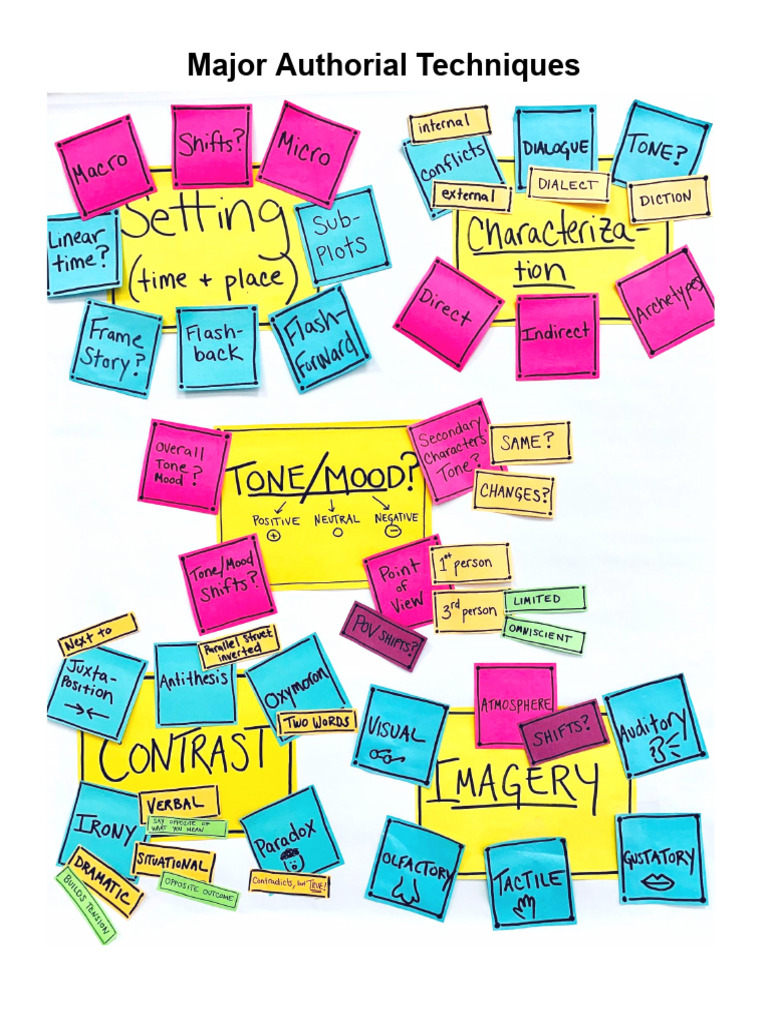 Major Authorial Techniques
Macro
Shifts?
Micro
Setting
(time + place)
Linear
time?
Sub-
Plots
Frame
Story?
Flash-
back
Flash-
Forward
internal
conflicts
external
DIALOGUE
DIALECT
TONE?
DICTION
Characteriza-
tion
Direct
Indirect
Archetypes
Overall
Tone
Mood?
TONE/MOOD?
POSITIVE
+
NEUTRAL
NEGATIVE
-
Secondary
Characters'
Tone?
SAME?
CHANGES?
Tone/Mood
Shifts?
Point
of
View
1st person
3rd person
LIMITED
OMNISCIENT
POV SHIFTS?
Next to
Juxta-
Position
Antithesis
Parallel Struct
inverted
Oxymoron
TWO WORDS
CONTRAST
IRONY
VERBAL
SAY OPPOSITE OF
WHAT YOU MEAN
SITUATIONAL
OPPOSITE OUTCOME
DRAMATIC
BUILDS TENSION
Paradox
Contradicts, but TRUE!
VISUAL
ATMOSPHERE
SHIFTS?
Auditory
IMAGERY
OLFACTORY
TACTILE
GUSTATORY